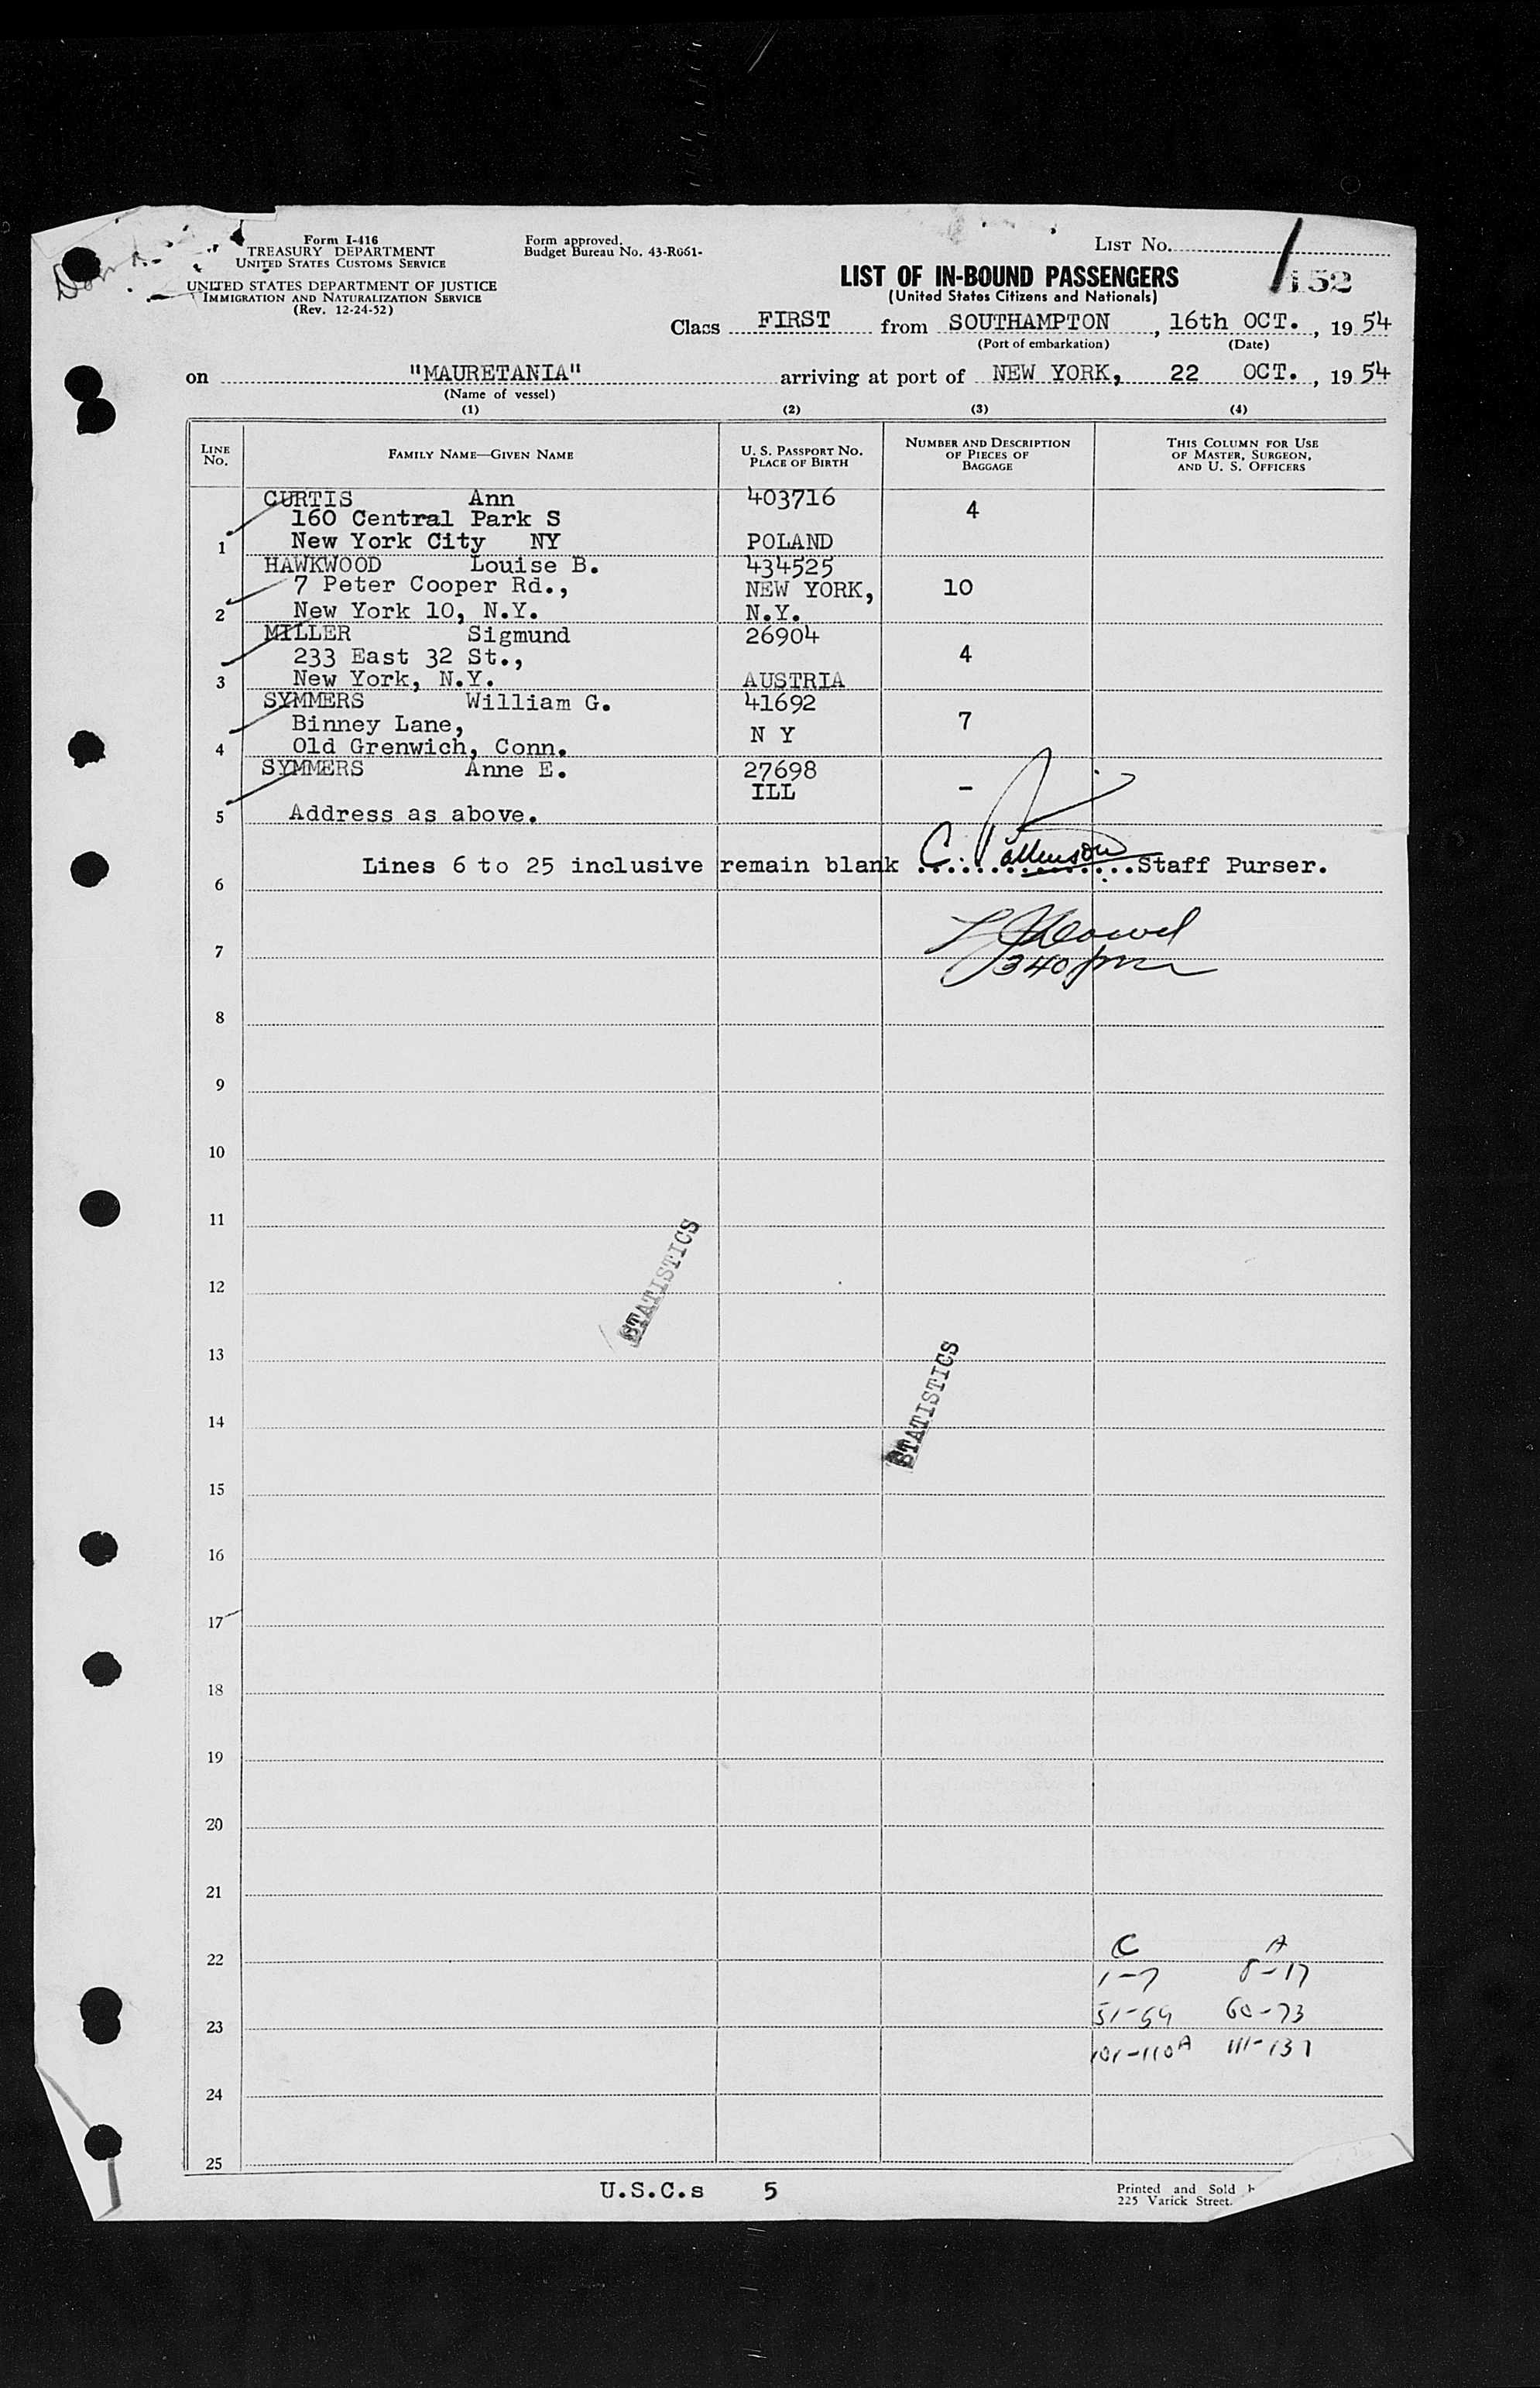 Form I-416
TREASURY DEPARTMENT
UNITED STATES CUSTOMS SERVICE
UNITED STATES DEPARTMENT OF JUSTICE
IMMIGRATION AND NATURALIZATION SERVICE
(Rev. 12-24-52)
Form approved.
Budget Bureau No. 43-R061-
LIST NO.
152
LIST OF IN-BOUND PASSENGERS
(United States Citizens and Nationals)
Class FIRST from SOUTHAMPTON, 16th OCT., 1954
(Port of embarkation) (Date)
on "MAURETANIA" arriving at port of NEW YORK, 22 OCT., 1954
(Name of vessel)
(1) (2) (3) (4)
LINE No. FAMILY NAME—GIVEN NAME U. S. PASSPORT NO. PLACE OF BIRTH NUMBER AND DESCRIPTION OF PIECES OF BAGGAGE THIS COLUMN FOR USE OF MASTER, SURGEON, AND U. S. OFFICERS
CURTIS Ann 403716 4
160 Central Park S
1 New York City NY POLAND
HAWKWOOD Louise B. 434525
7 Peter Cooper Rd., NEW YORK, 10
2 New York 10, N.Y. N.Y.
MILLER Sigmund 26904
233 East 32 St., 4
3 New York, N.Y. AUSTRIA
SYMMERS William G. 41692
Binney Lane, N Y 7
4 Old Grenwich, Conn.
SYMMERS Anne E. 27698
ILL -
5 Address as above.
Lines 6 to 25 inclusive remain blank Staff Purser.
6
7
340 pm
8
9
10
11
12
STATISTICS
13
STATISTICS
14
15
16
17
18
19
20
21
C A
22
1-7 8-17
51-59 60-73
23
101-110A 111-137
24
25
U.S.C.s 5
Printed and Sold
225 Varick Street.